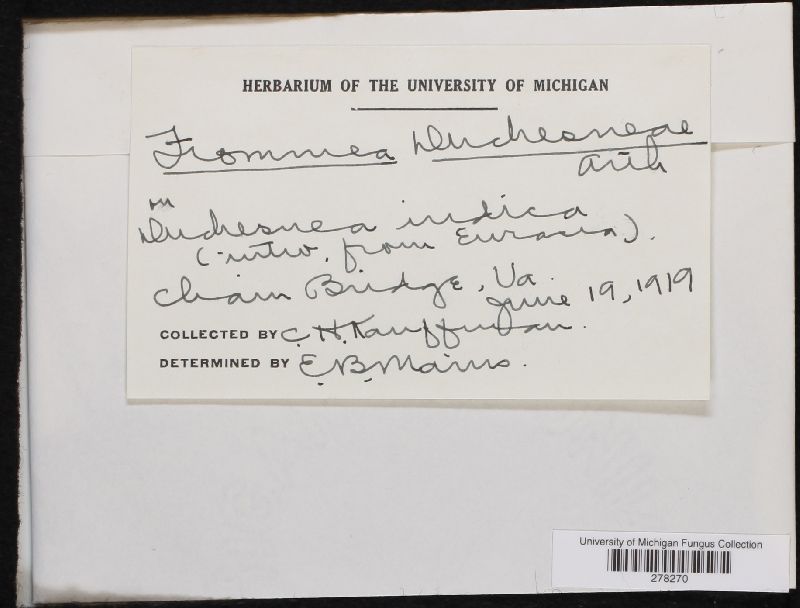 HERBARIUM OF THE UNIVERSITY OF MICHIGAN
Frommea Duchesneae
Arth
on
Duchesnea indica
(intro. from Eurasia).
Chain Bridge, Va.
June 19, 1919
COLLECTED BY C. H. Kauffman.
DETERMINED BY E. B. Mains.
University of Michigan Fungus Collection
278270